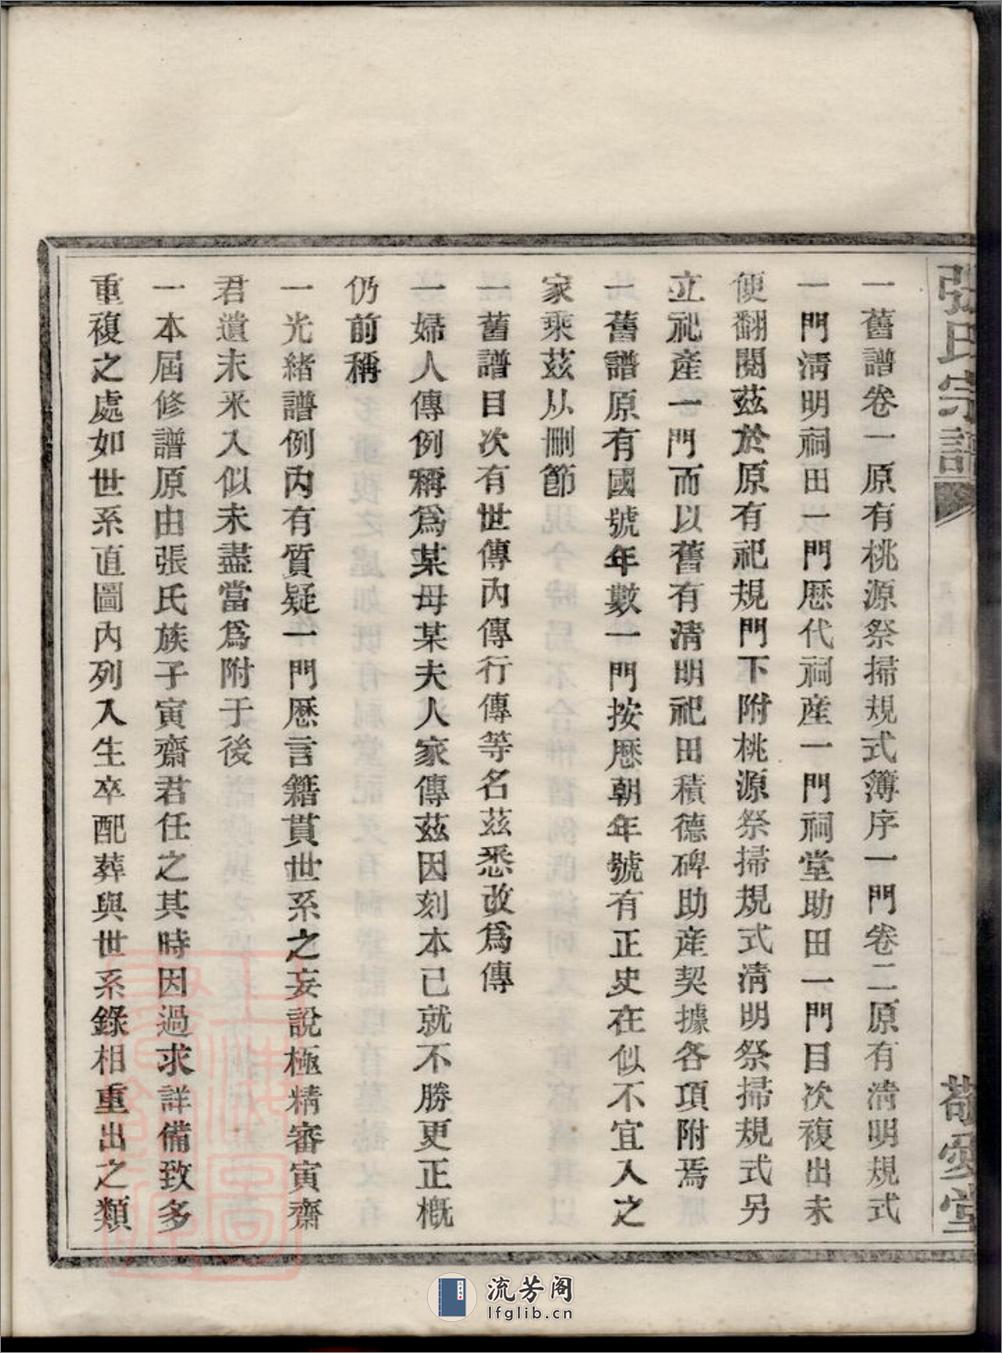 張氏宗譜
敬愛堂
一舊譜卷一原有桃源祭掃規式簿序一門卷二原有清明規式
一門清明祠田一門歷代祠産一門祠堂助田一門目次複出未
便翻閱茲於原有祀規門下附桃源祭掃規式清明祭掃規式另
立祀産一門而以舊有清明祀田積德碑助産契據各項附焉
一舊譜原有國號年數一門按歷朝年號有正史在似不宜入之
家乘茲从刪節
一舊譜目次有世傳內傳行傳等名茲悉改爲傳
一婦人傳例稱爲某母某夫人家傳茲因刻本已就不勝更正概
仍前稱
一光緒譜例內有質疑一門歷言籍貫世系之妄說極精審寅齋
君遺未釆入似未盡當爲附于後
一本屆修譜原由張氏族子寅齋君任之其時因過求詳備致多
重複之處如世系直圖內列入生卒配葬與世系錄相重出之類
流芳阁
lfglib.cn